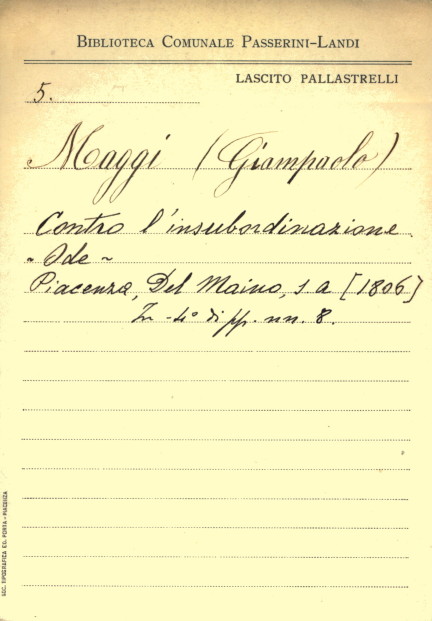 BIBLIOTECA COMUNALE PASSERINI-LANDI
LASCITO PALLASTRELLI
5.
Maggi (Giampaolo)
Contro l'insubordinazione.
- Ode -
Piacenza, Del Maino, s. a [1806]
In -4° di pp. nn. 8.
SOC. TIPOGRAFICA ED. PORTA - PIACENZA